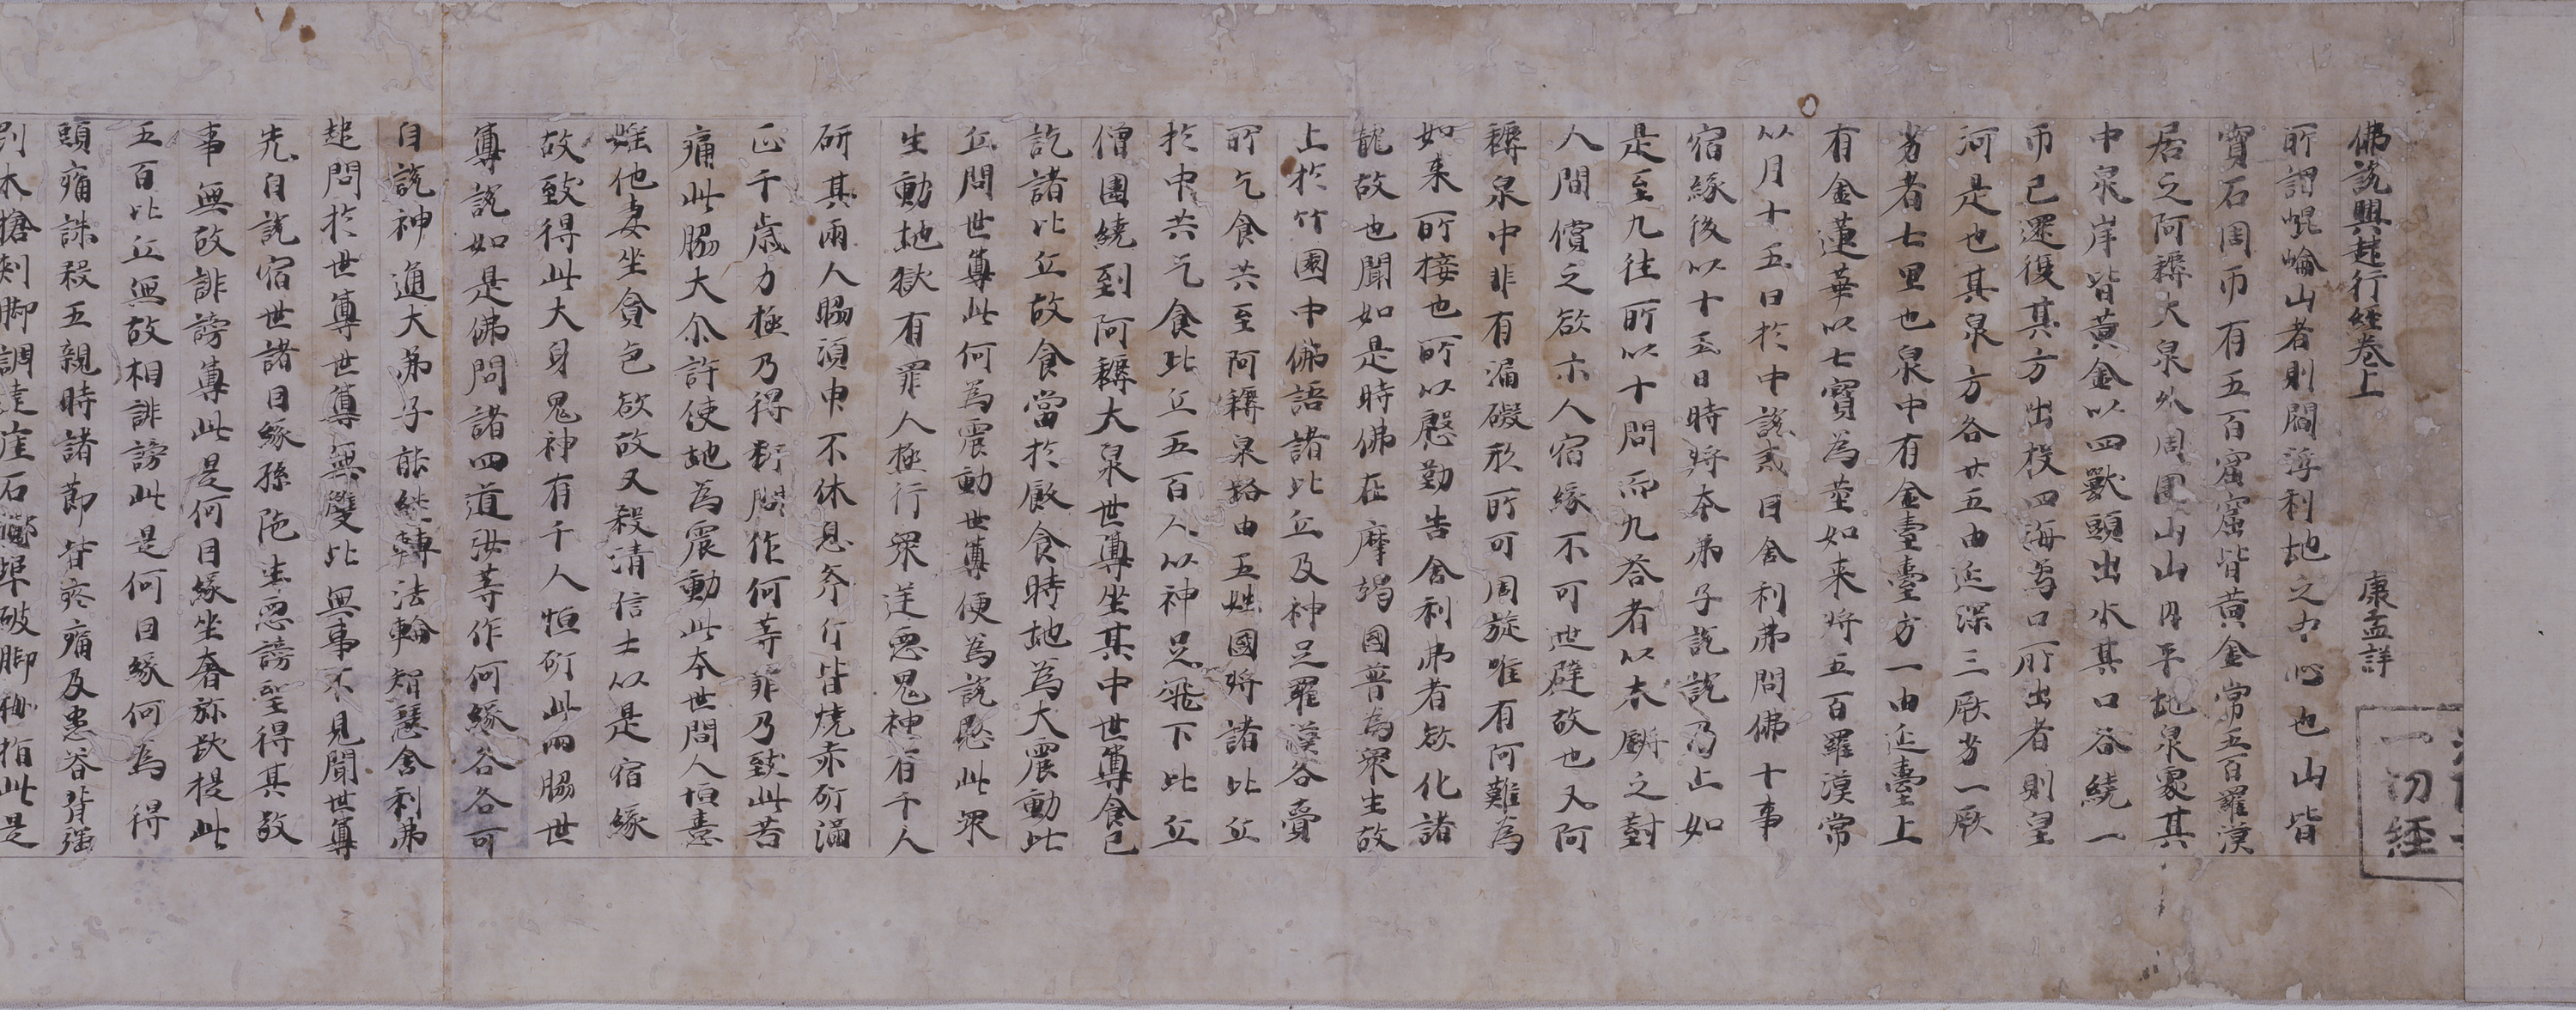 佛說興起行經卷上
康孟詳
一切経
所謂崐崘山者則閻浮利地之中心也山皆
寶石周帀有五百窟窟皆黃金常五百羅漢
居之阿耨大泉外周圍山山內平地泉處其
中泉岸皆黃金以四獸頭出水其口各繞一
帀已還復其方出投四海象口所出者則皇
河是也其泉方各廿五由延深三厥劣一厥
劣者七里也泉中有金臺臺方一由延臺上
有金蓮華以七寶為莖如来將五百羅漢常
以月十五日於中說貳目舍利弗問佛十事
宿緣後以十五日時將本弟子說說乃止如
是至九往所以十問而九荅者以木鏘之對
人間償之欲示人宿緣不可逃避故也又阿
耨泉中非有漏礙形所可周旋唯有阿難為
如来所接也所以慇勤告舍利弗者欲化諸
龍故也聞如是時佛在摩竭國普為眾生故
上於竹園中佛語諸比丘及神足羅漢各賣
所乞食共至阿耨泉路由五姓國將諸比丘
於中共乞食比丘五百人以神足飛下比丘
僧圍繞到阿耨大泉世尊坐其中世尊食已
訖諸比丘故食當於飯食時地為大震動比
丘問世尊此何為震動世尊便為說愍此眾
生動地獄有罪人極行眾逆惡鬼神有千人
研其兩人脇須申不休息斧斤皆燒赤斫滿
正千歲力極乃得斷問作何等罪乃致此苦
痛此脇大尒許使地為震動此本世間人恒憙
婬他妻坐貪色欲故又殺清信士以是宿緣
故致得此大身鬼神有千人恒斫此兩脇世
尊說如是佛問諸四道汝等作何緣各各可
自說神通大弟子能継轉法輪智慧舍利弗
起問於世尊世尊無雙比無事不見聞世尊
先自說宿世諸目緣孫陁生惡謗聖得其故
事無故誹謗尊此是何目緣坐奢弥跋提此
五百比丘無故相誹謗此是何目緣何為得
頭痛誅殺五親時諸節皆疼痛及患脊背強
剛木槍刺脚調達崖石擲埠破脚拇指此是